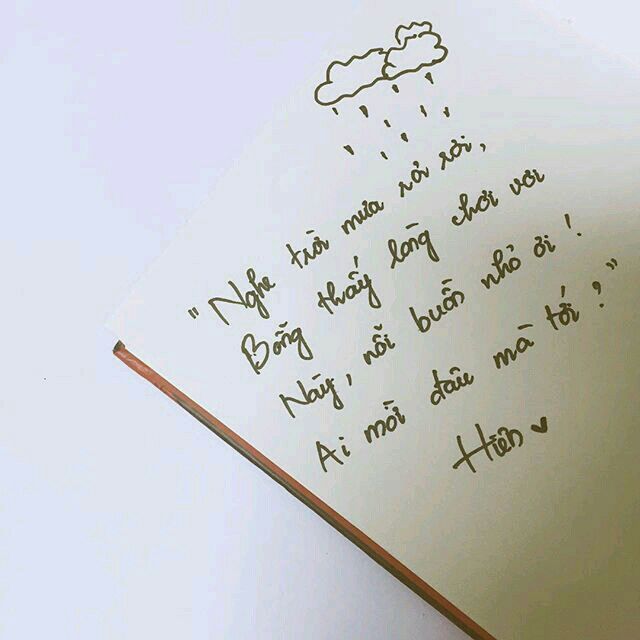 "Nghe trời mưa rả rơi,
Bỗng thấy lòng chơi vơi
Này, nỗi buồn nhỏ ơi!
Ai mời đâu mà tới?"
Hiên